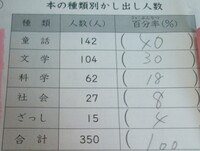 本の種類別かし出し人数
種類 人数(人) 百分率(%)
童話 142 (40)
文学 104 (30)
科学 62 (18)
社会 27 (8)
ざっし 15 (4)
合計 350 (100)